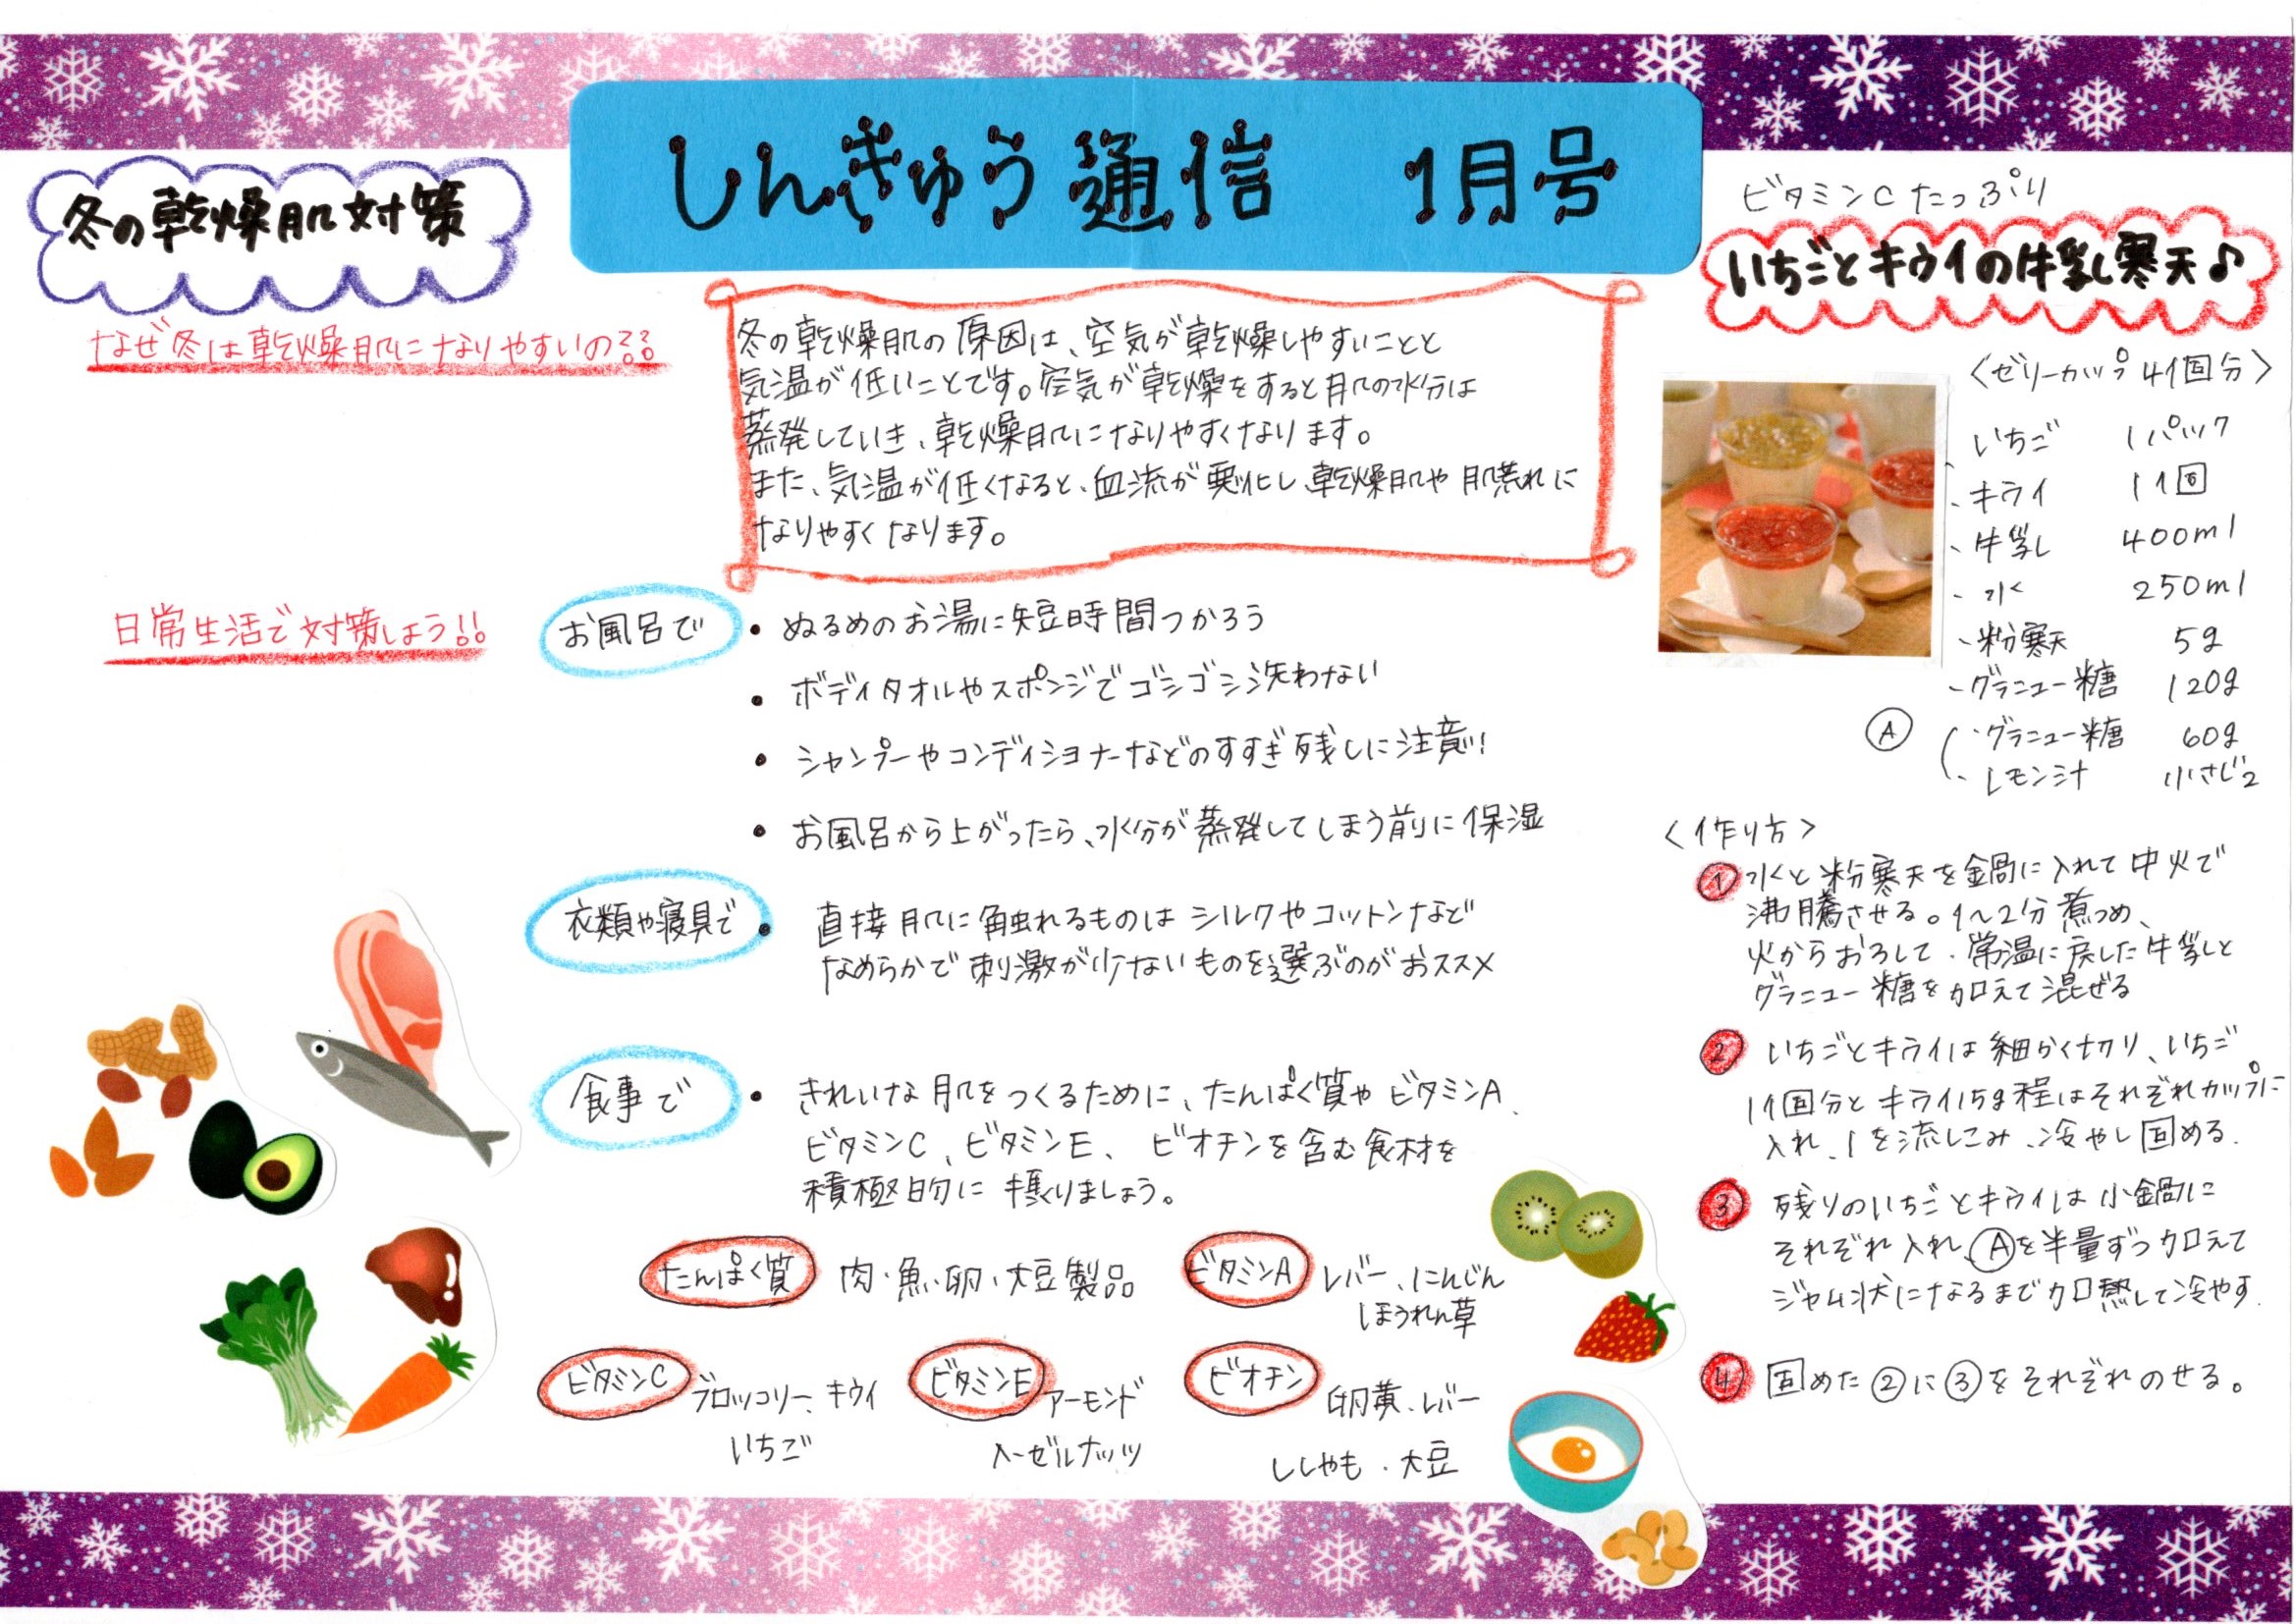 しんきゅう通信　1月号
冬の乾燥肌対策
なぜ冬は乾燥肌になりやすいの??
冬の乾燥肌の原因は、空気が乾燥しやすいことと
気温が低いことです。空気が乾燥をすると肌の水分は
蒸発していき、乾燥肌になりやすくなります。
また、気温が低くなると、血流が悪化し、乾燥肌や肌荒れに
なりやすくなります。
日常生活で対策しよう!!
お風呂で
• ぬるめのお湯に短時間つかろう
• ボディタオルやスポンジでゴシゴシ洗わない
• シャンプーやコンディショナーなどのすすぎ残しに注意!
• お風呂から上がったら、水分が蒸発してしまう前に保湿
衣類や寝具で
• 直接肌に触れるものはシルクやコットンなど
なめらかで刺激が少ないものを選ぶのがおススメ
食事で
• きれいな肌をつくるために、たんぱく質やビタミンA、
ビタミンC、ビタミンE、ビオチンを含む食材を
積極的に摂りましょう。
たんぱく質 肉・魚・卵・大豆製品
ビタミンA レバー、にんじん
ほうれん草
ビタミンC ブロッコリー、キウイ
いちご
ビタミンE アーモンド
ヘーゼルナッツ
ビオチン 卵黄、レバー
ししゃも・大豆
ビタミンCたっぷり
いちごとキウイの牛乳寒天♪
〈ゼリーカップ4個分〉
いちご 1パック
・キウイ 1個
・牛乳 400ml
・水 250ml
・粉寒天 5g
・グラニュー糖 120g
Ⓐ ・グラニュー糖 60g
・レモン汁 小さじ2
〈作り方〉
① 水と粉寒天を鍋に入れて中火で
沸騰させる。1〜2分煮つめ、
火からおろして、常温に戻した牛乳と
グラニュー糖を加えて混ぜる
② いちごとキウイは細かく切り、いちご
1個分とキウイ15g程はそれぞれカップに
入れ、1を流しこみ、冷やし固める.
③ 残りのいちごとキウイは小鍋に
それぞれ入れ、Ⓐを半量ずつ加えて
ジャム状になるまで加熱して冷やす.
④ 固めた②に③をそれぞれのせる。